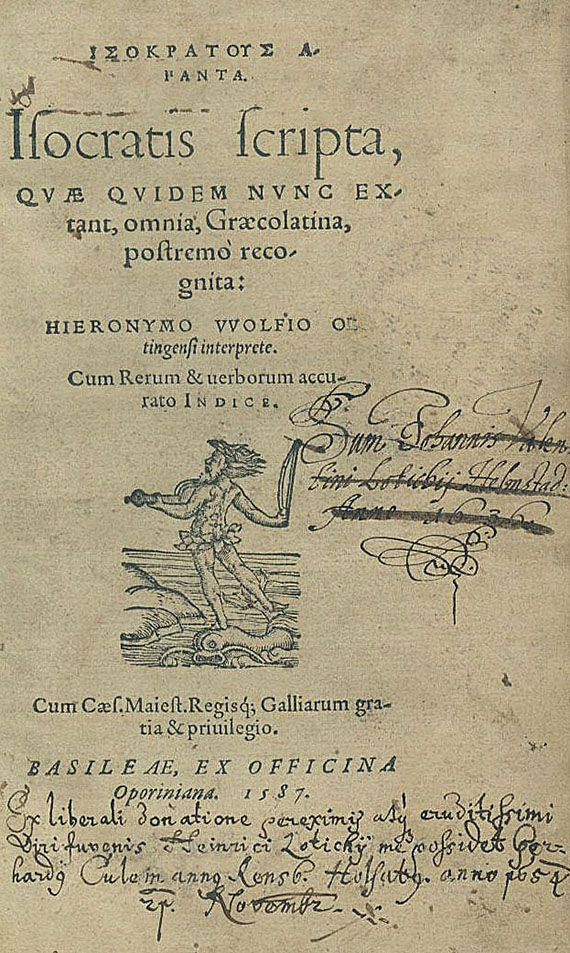 ΙΣΟΚΡΑΤΟΥΣ Α-
ΠΑΝΤΑ.
Iſocratis ſcripta,
QVÆ QVIDEM NVNC EX-
tant, omnia, Græcolatina,
poſtremò reco-
gnita:
HIERONYMO VVOLFIO OE
tingenſi interprete.
Cum Rerum & uerborum accu-
rato INDICE.
Sum Johannis Valen
tini Lotichij Helmstad:
Anno 1636
Cum Cæſ. Maieſt. Regisq́; Galliarum gra-
tia & priuilegio.
BASILEAE, EX OFFICINA
Oporiniana. 1587.
Ex liberali donatione pereximij atq eruditissimi
Viri Juvenis Heinrici Lotichij me possidet Ger-
hardg Culeman Rensb. Holsatg. anno
Novembr.